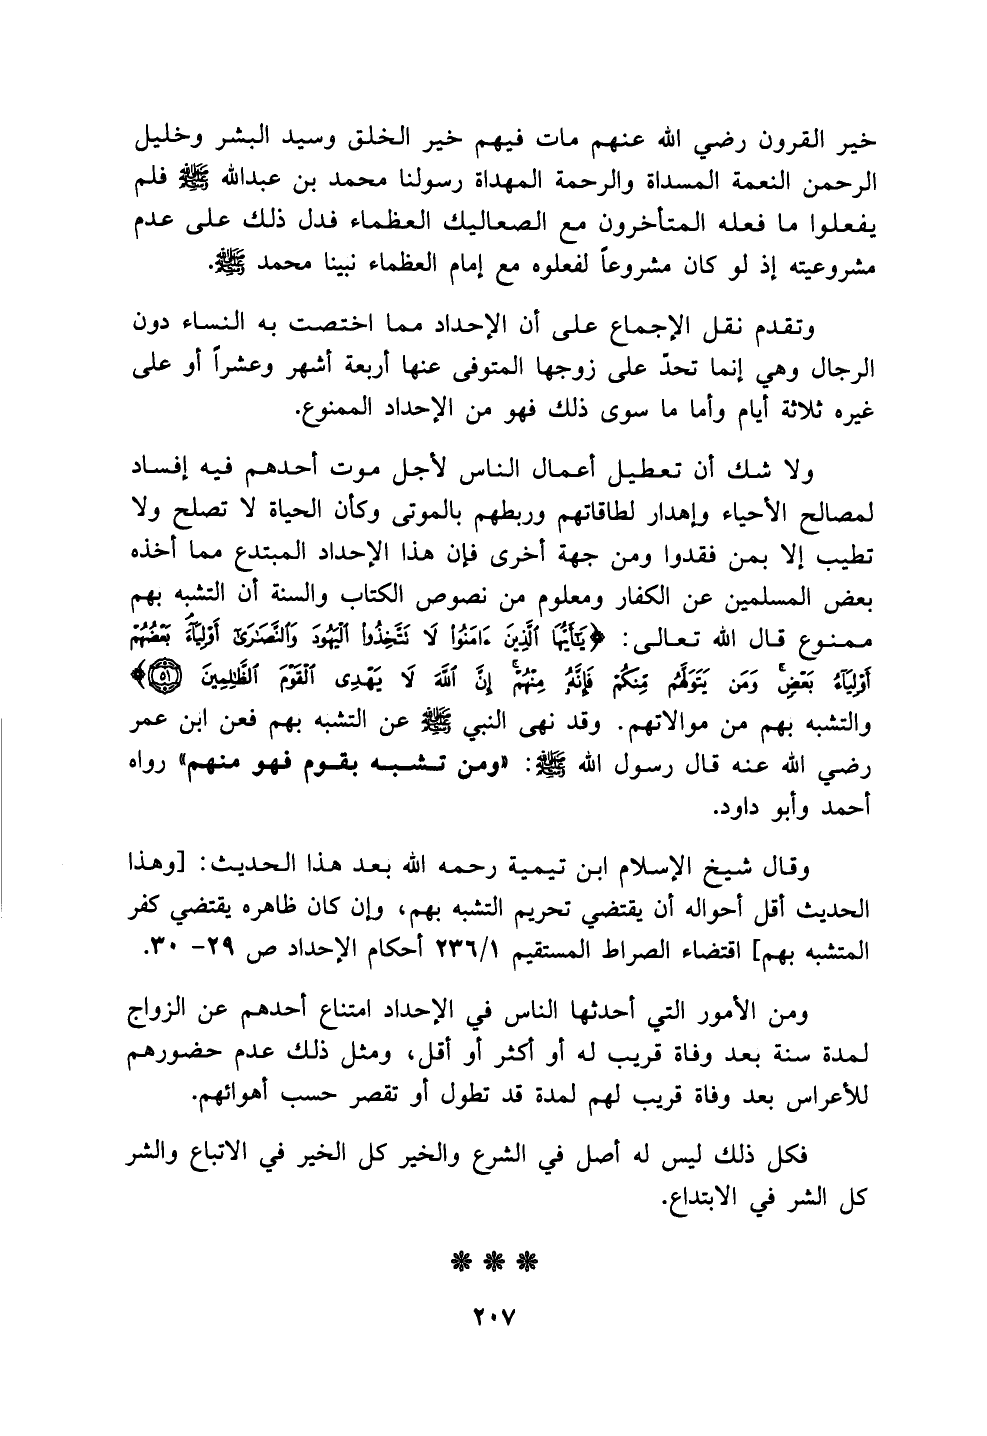 خير القرون رضي الله عنهم مات فيهم خير الخلق وسيد البشر وخليل
الرحمن النعمة المسداة والرحمة المهداة رسولنا محمد بن عبدالله ﷺ فلم
يفعلوا ما فعله المتأخرون مع الصعاليك العظماء فدل ذلك على عدم
مشروعيته إذ لو كان مشروعاً لفعلوه مع إمام العظماء نبينا محمد ﷺ.
وتقدم نقل الإجماع على أن الإحداد مما اختصت به النساء دون
الرجال وهي إنما تحدّ على زوجها المتوفى عنها أربعة أشهر وعشراً أو على
غيره ثلاثة أيام وأما ما سوى ذلك فهو من الإحداد الممنوع.
ولا شك أن تعطيل أعمال الناس لأجل موت أحدهم فيه إفساد
لمصالح الأحياء وإهدار لطاقاتهم وربطهم بالموتى وكأن الحياة لا تصلح ولا
تطيب إلا بمن فقدوا ومن جهة أخرى فإن هذا الإحداد المبتدع مما أخذه
بعض المسلمين عن الكفار ومعلوم من نصوص الكتاب والسنة أن التشبه بهم
ممنوع قال الله تعالى: ﴿يَٰٓأَيُّهَا ٱلَّذِينَ ءَامَنُوا۟ لَا تَتَّخِذُوا۟ ٱلْيَهُودَ وَٱلنَّصَٰرَىٰٓ أَوْلِيَآءَ ۘ بَعْضُهُمْ
أَوْلِيَآءُ بَعْضٍ ۚ وَمَن يَتَوَلَّهُم مِّنكُمْ فَإِنَّهُۥ مِنْهُمْ ۗ إِنَّ ٱللَّهَ لَا يَهْدِى ٱلْقَوْمَ ٱلظَّٰلِمِينَ ٥١﴾
والتشبه بهم من موالاتهم. وقد نهى النبي ﷺ عن التشبه بهم فعن ابن عمر
رضي الله عنه قال رسول الله ﷺ: «ومن تشبه بقوم فهو منهم» رواه
أحمد وأبو داود.
وقال شيخ الإسلام ابن تيمية رحمه الله بعد هذا الحديث: [وهذا
الحديث أقل أحواله أن يقتضي تحريم التشبه بهم، وإن كان ظاهره يقتضي كفر
المتشبه بهم] اقتضاء الصراط المستقيم ٢٣٦/١ أحكام الإحداد ص ٢٩- ٣٠.
ومن الأمور التي أحدثها الناس في الإحداد امتناع أحدهم عن الزواج
لمدة سنة بعد وفاة قريب له أو أكثر أو أقل، ومثل ذلك عدم حضورهم
للأعراس بعد وفاة قريب لهم لمدة قد تطول أو تقصر حسب أهوائهم.
فكل ذلك ليس له أصل في الشرع والخير كل الخير في الاتباع والشر
كل الشر في الابتداع.
❋ ❋ ❋
٢٠٧